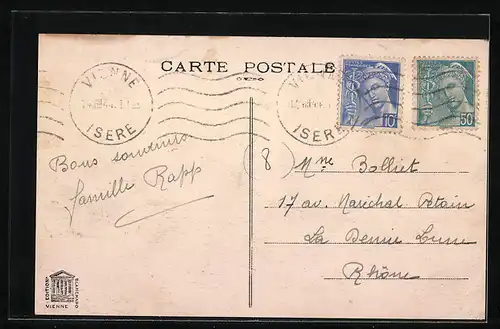 CARTE POSTALE
VIENNE
ISERE
VIENNE
ISERE
10
50
Bons souvenirs
famille Rapp
(8) Mme Bolliet
17 av. Maréchal Petain
La Demie Lune
Rhône
EDITION
VIENNE